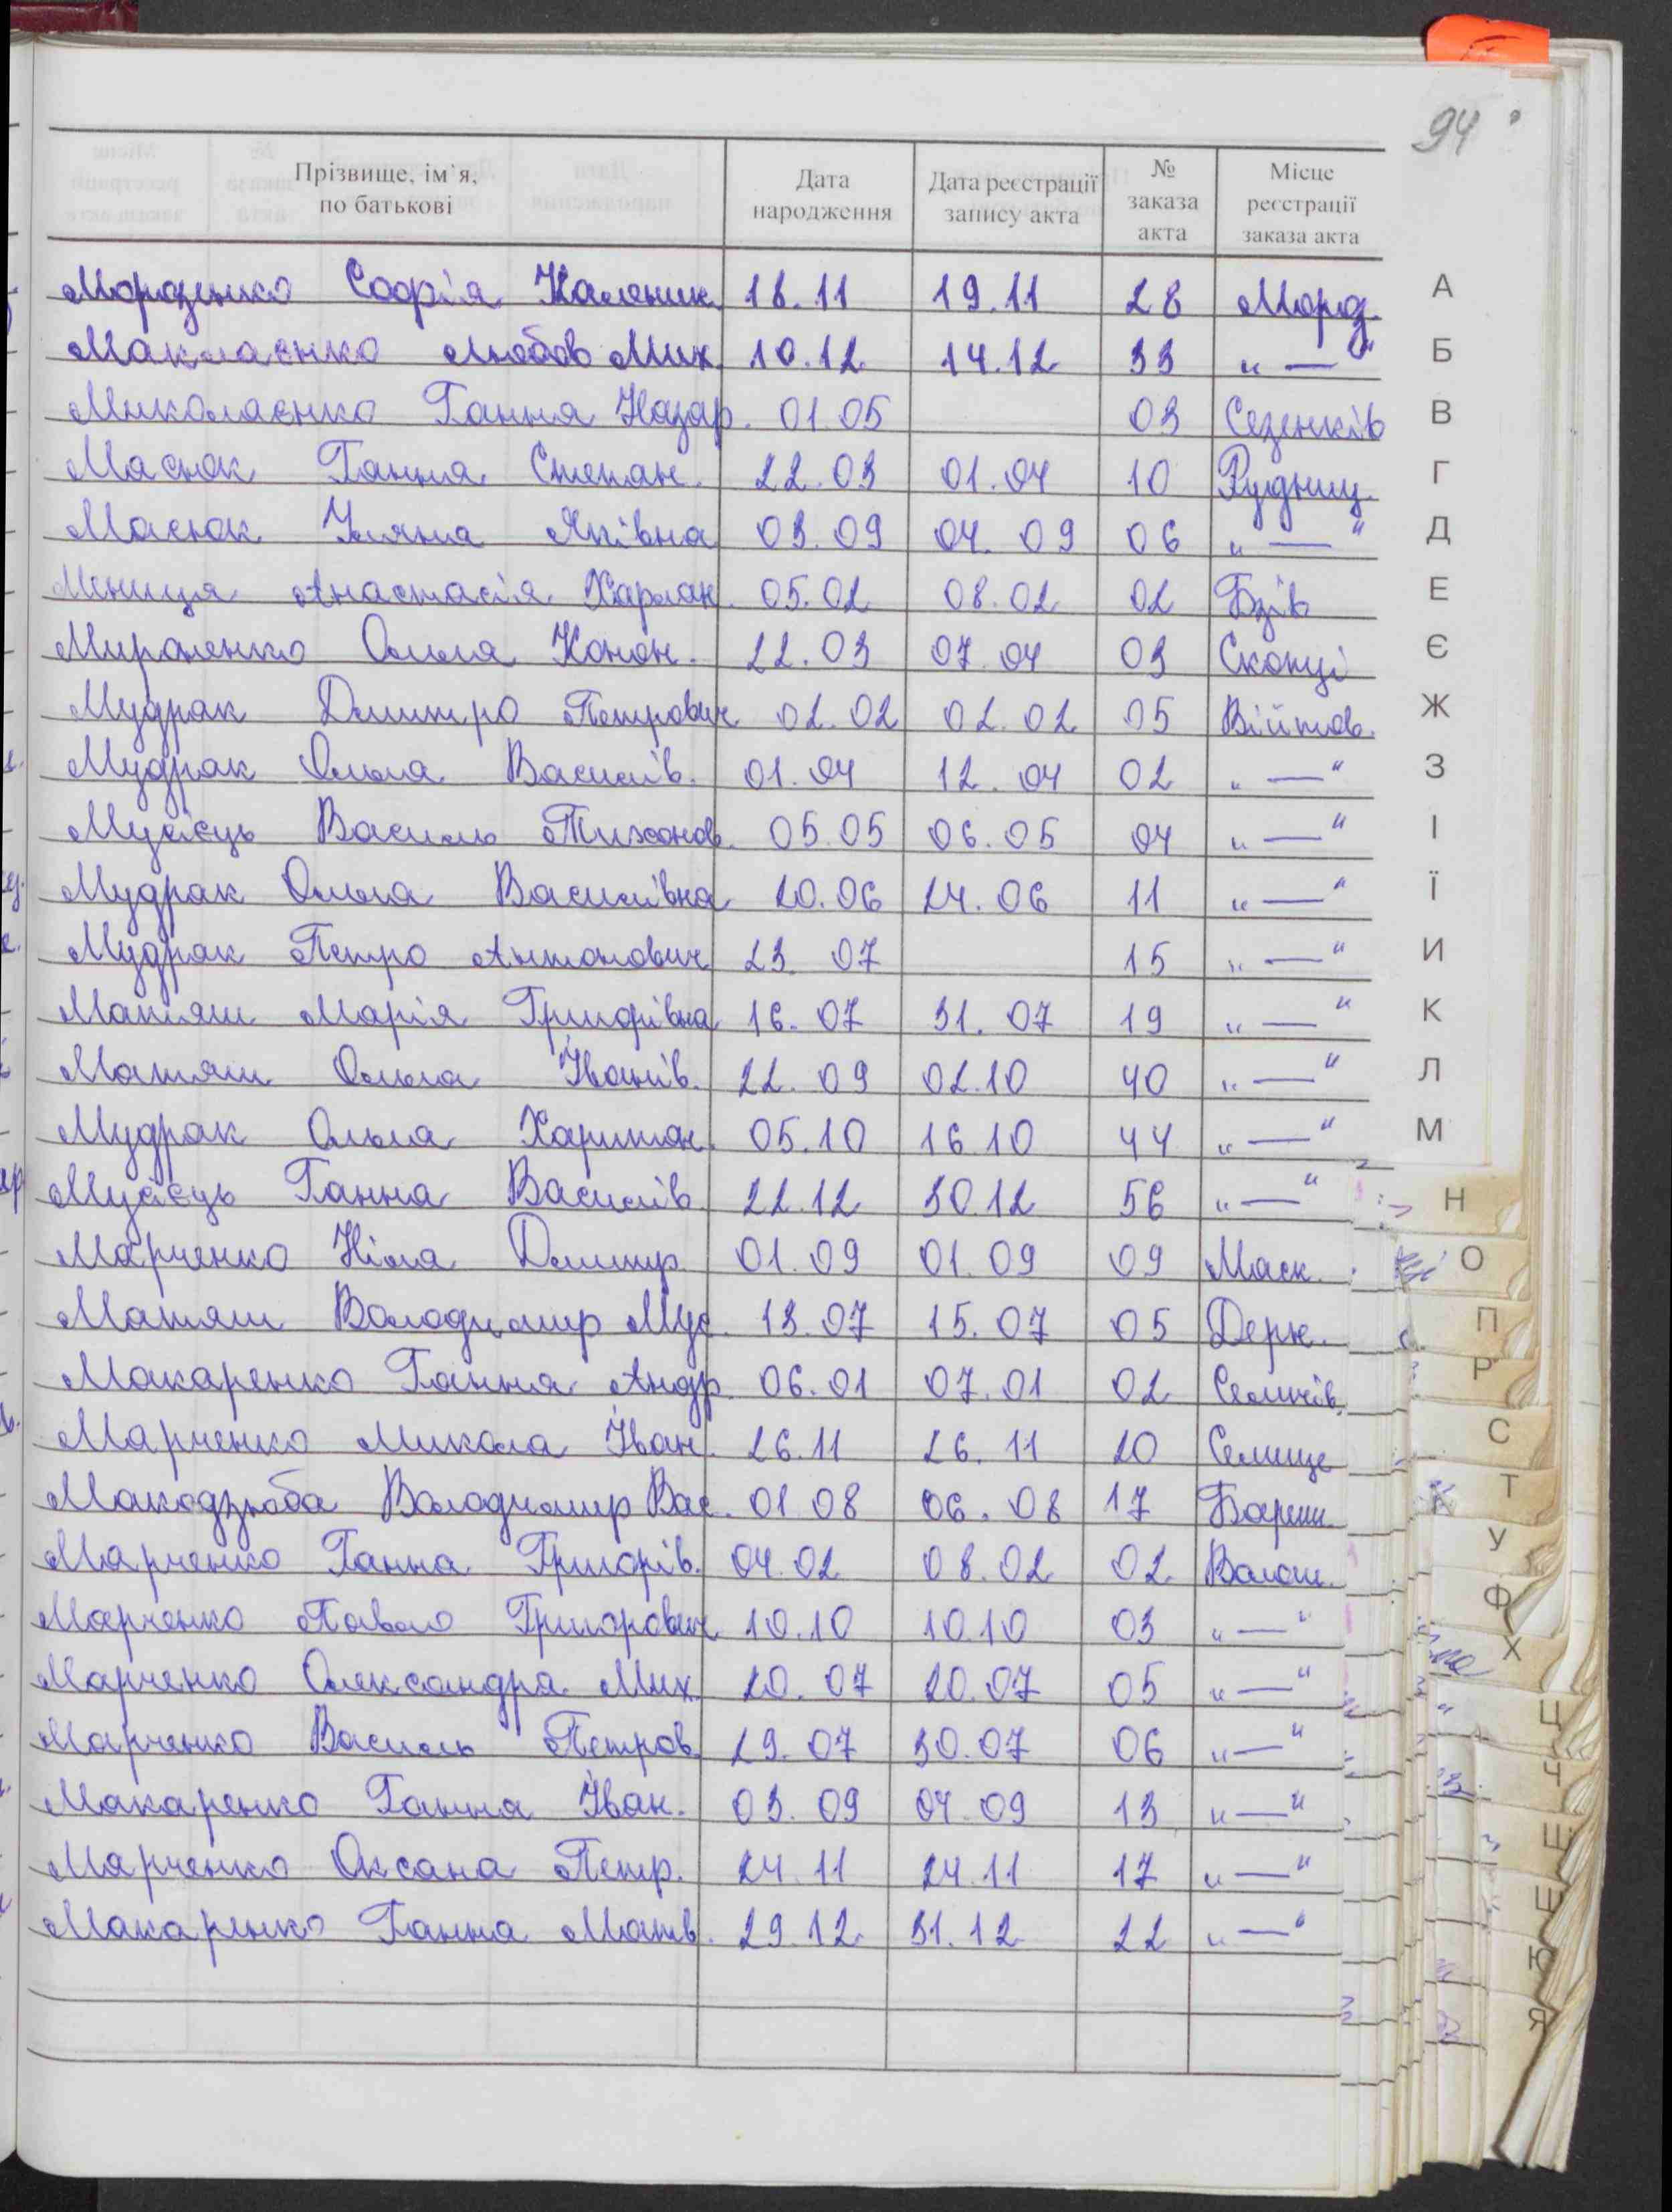 94
Прізвище, ім'я, по батькові | Дата народження | Дата реєстрації запису акта | № заказа акта | Місце реєстрації заказа акта
Морозенко Софія Каленик. 18.11 19.11 28 Мороз.
Маклаєнко Любов Мих. 10.12 14.12 33 "—"
Миколаєнко Ганна Назар. 01.05 03 Сезенків
Масюк Ганна Степан. 22.03 01.04 10 Рудниц.
Масюк Уляна Яківна 03.09 04.09 06 "—"
Мениця Анастасія Харлан. 05.02 08.02 02 Бзів
Мироненко Ольга Конон. 22.03 07.04 03 Скопці
Мудрак Дмитро Петрович 02.02 02.02 05 Війтов.
Мудрак Ольга Василів. 01.04 12.04 02 "—"
Мусієць Василь Тихонов. 05.05 06.05 04 "—"
Мудрак Ольга Василівна 20.06 24.06 11 "—"
Мудрак Петро Антонович 23.07 15 "—"
Матяш Марія Григорівна 16.07 31.07 19 "—"
Матяш Ольга Іванів. 22.09 02.10 40 "—"
Мудрак Ольга Харитон. 05.10 16.10 44 "—"
Мусієць Ганна Василів. 22.12 30.12 56 "—"
Марченко Ніла Дмитр. 01.09 01.09 09 Маск.
Матяш Володимир Мус. 13.07 15.07 05 Дерн.
Макаренко Ганна Андр. 06.01 07.01 02 Семичів.
Марченко Микола Іван. 26.11 26.11 20 Селище
Макодзюба Володимир Вас. 01.08 06.08 17 Бариш.
Марченко Ганна Григорів. 04.02 08.02 02 Волош.
Марченко Павло Григорович 10.10 10.10 03 "—"
Марченко Олександра Мих. 20.07 20.07 05 "—"
Марченко Василь Петров. 29.07 30.07 06 "—"
Макаренко Ганна Іван. 03.09 04.09 13 "—"
Марченко Оксана Петр. 24.11 24.11 17 "—"
Макаренко Ганна Матв. 29.12 31.12 22 "—"
А
Б
В
Г
Д
Е
Є
Ж
З
І
Ї
И
К
Л
М
Н
О
П
Р
С
Т
У
Ф
Х
Ц
Ч
Ш
Щ
Ю
Я